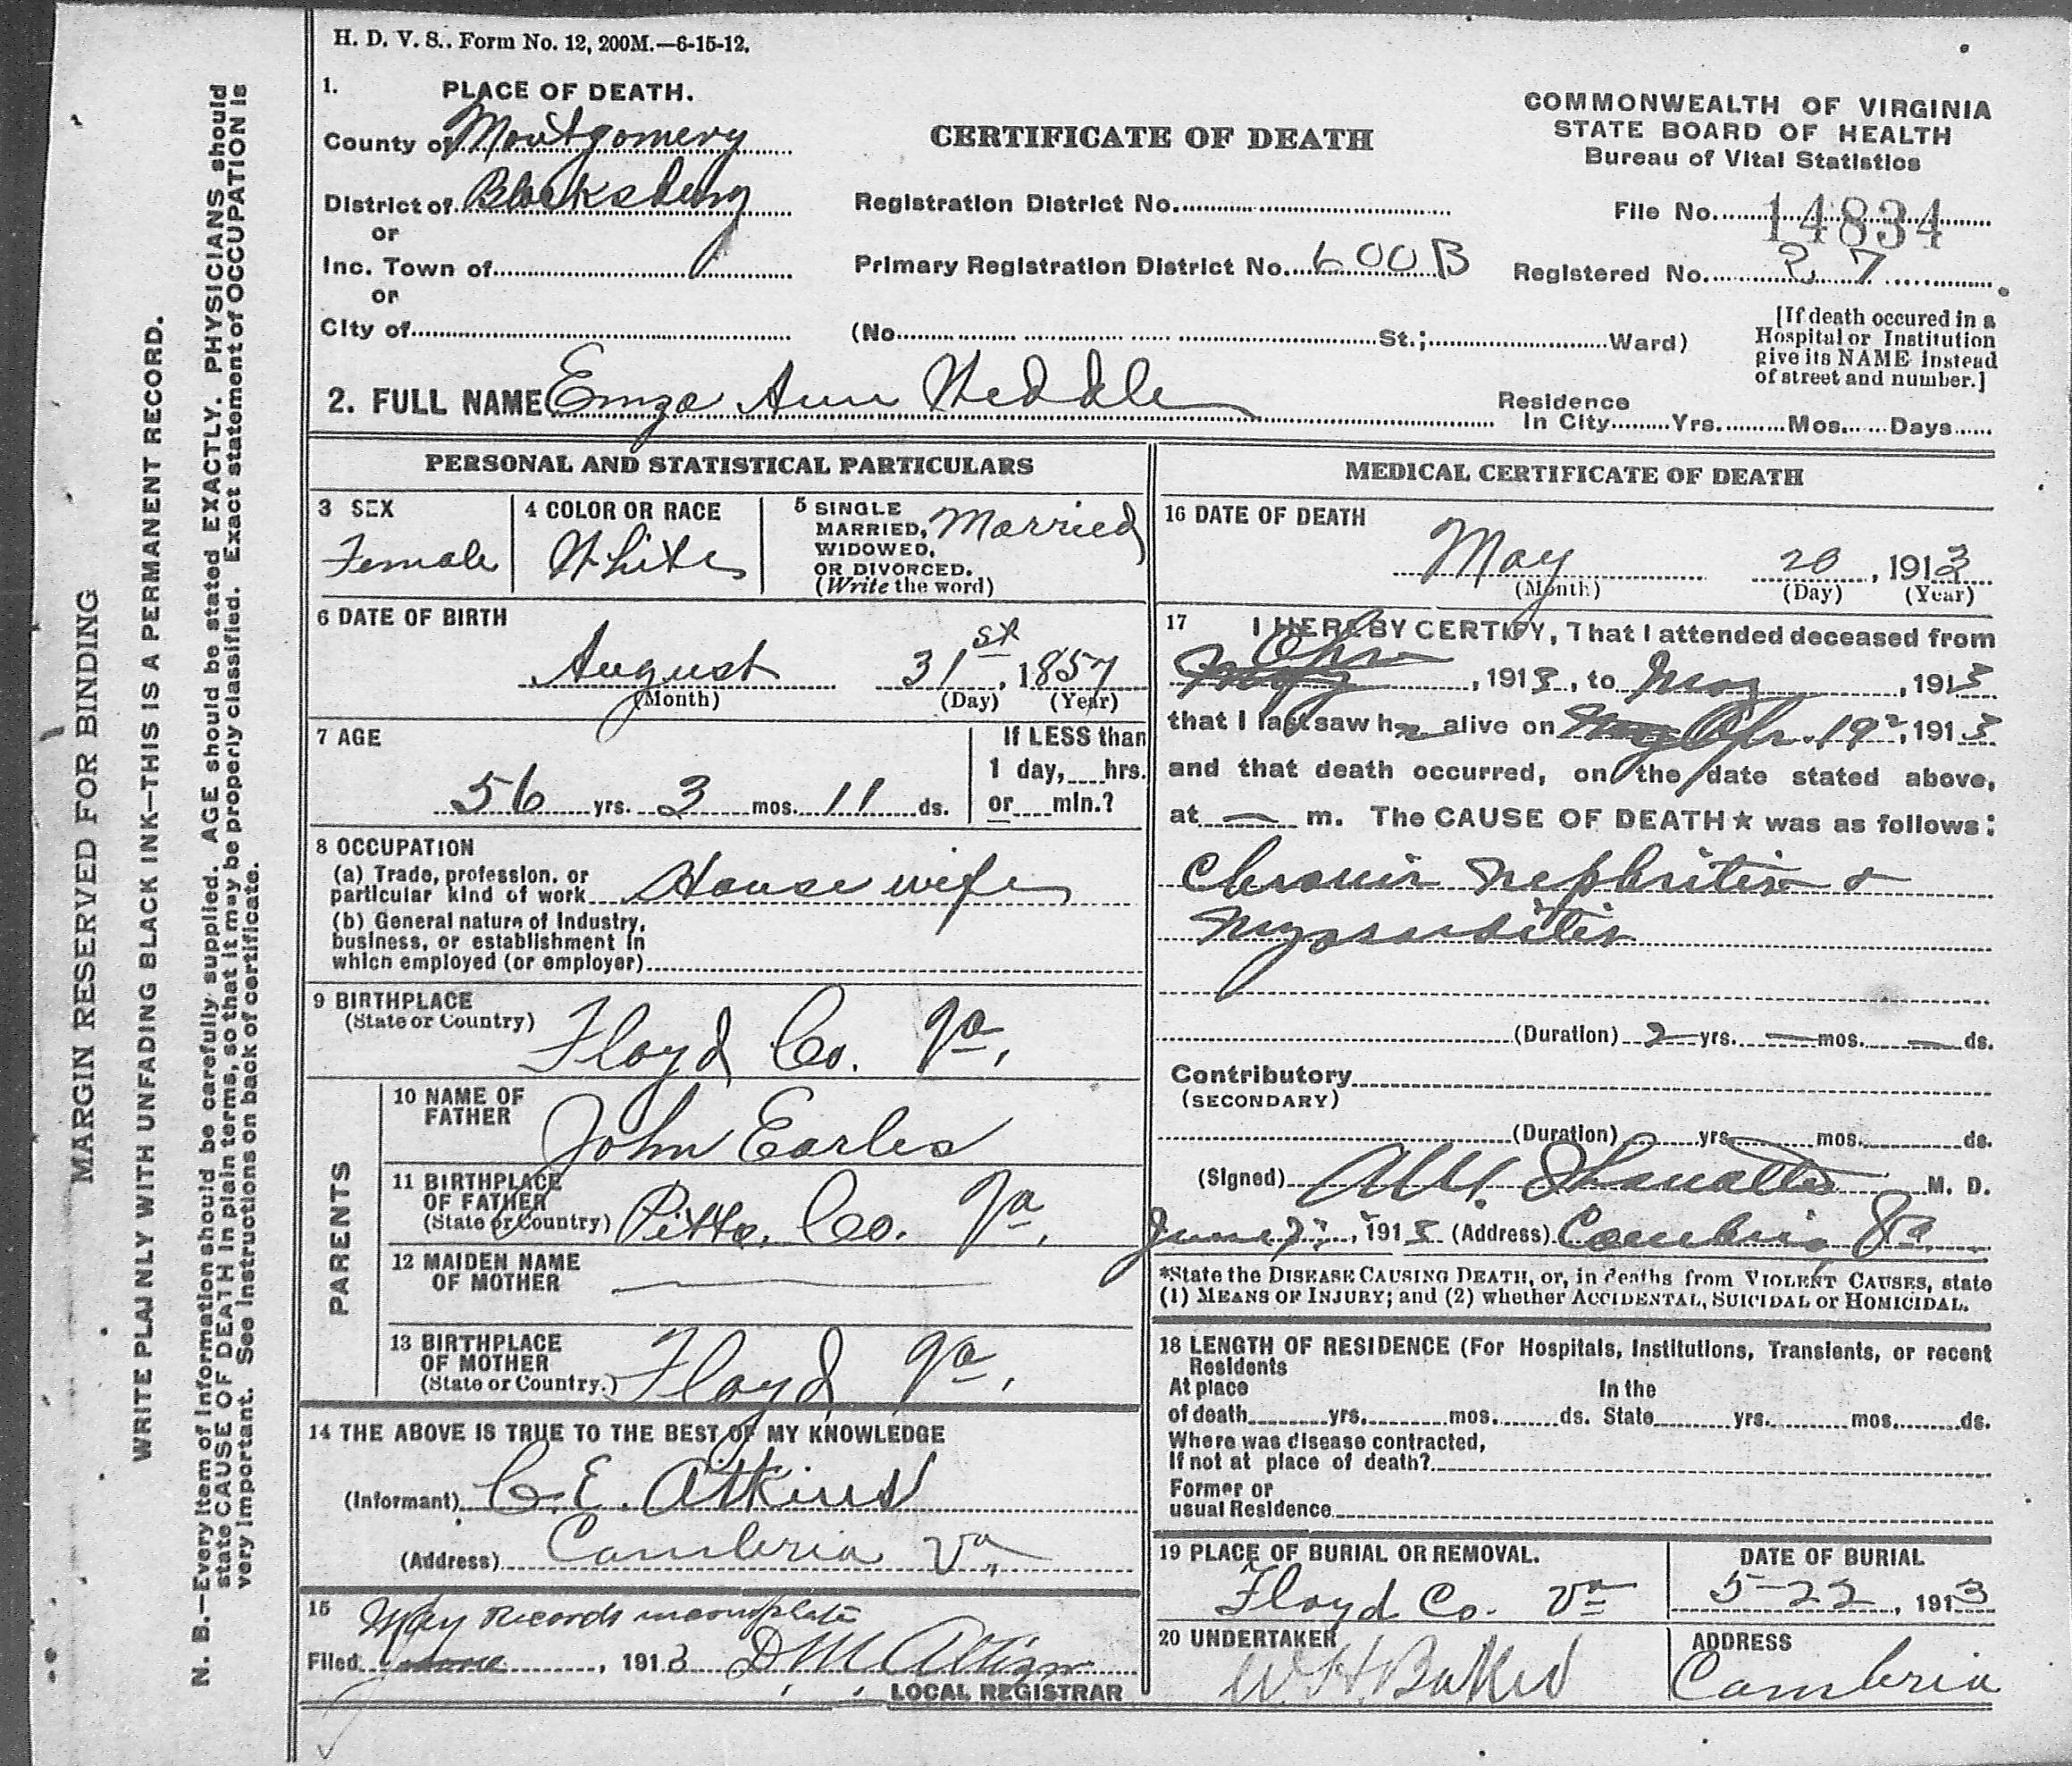 H. D. V. S.. Form No. 12, 200M.—6-15-12.
1. PLACE OF DEATH.
County of Montgomery
District of Blacksburg
or
Inc. Town of
or
City of
CERTIFICATE OF DEATH
Registration District No.
Primary Registration District No. 600B
(No. St.; Ward)
COMMONWEALTH OF VIRGINIA
STATE BOARD OF HEALTH
Bureau of Vital Statistics
File No. 14834
Registered No. 27
[If death occured in a
Hospital or Institution
give its NAME instead
of street and number.]
2. FULL NAME Emza Ann Weddle
Residence
In City Yrs. Mos. Days
PERSONAL AND STATISTICAL PARTICULARS
3 SEX
Female
4 COLOR OR RACE
White
5 SINGLE
MARRIED,
WIDOWED,
OR DIVORCED.
(Write the word)
Married
6 DATE OF BIRTH
August 31st, 1857
(Month) (Day) (Year)
7 AGE
56 yrs. 3 mos. 11 ds.
If LESS than
1 day, hrs.
or min.?
8 OCCUPATION
(a) Trade, profession, or
particular kind of work House wife
(b) General nature of Industry,
business, or establishment in
which employed (or employer)
9 BIRTHPLACE
(State or Country) Floyd Co. Va.
PARENTS
10 NAME OF
FATHER John Earles
11 BIRTHPLACE
OF FATHER
(State or Country) Pitts. Co. Va.
12 MAIDEN NAME
OF MOTHER
13 BIRTHPLACE
OF MOTHER
(State or Country.) Floyd Va.
14 THE ABOVE IS TRUE TO THE BEST OF MY KNOWLEDGE
(Informant) C. E. Atkins
(Address) Cambria Va.
15 May Records incomplete
Filed June, 1913 D. M. Altizer
LOCAL REGISTRAR
MEDICAL CERTIFICATE OF DEATH
16 DATE OF DEATH
May 20, 1913
(Month) (Day) (Year)
17 I HEREBY CERTIFY, That I attended deceased from
, 1913, to May, 1913
that I last saw her alive on Apr. 19, 1913
and that death occurred, on the date stated above,
at — m. The CAUSE OF DEATH★ was as follows:
Chronic Nephritis &
Myocarditis
(Duration) 2 yrs. — mos. — ds.
Contributory
(SECONDARY)
(Duration) yrs. mos. ds.
(Signed) M. D.
June 7, 1913 (Address) Cambria, Va.
*State the DISEASE CAUSING DEATH, or, in deaths from VIOLENT CAUSES, state
(1) MEANS OF INJURY; and (2) whether ACCIDENTAL, SUICIDAL or HOMICIDAL.
18 LENGTH OF RESIDENCE (For Hospitals, Institutions, Transients, or recent
Residents
At place In the
of death yrs. mos. ds. State yrs. mos. ds.
Where was disease contracted,
If not at place of death?
Former or
usual Residence
19 PLACE OF BURIAL OR REMOVAL.
Floyd Co. Va
DATE OF BURIAL
5-22, 1913
20 UNDERTAKER
W. H. Baker
ADDRESS
Cambria
MARGIN RESERVED FOR BINDING
WRITE PLAINLY WITH UNFADING BLACK INK—THIS IS A PERMANENT RECORD.
N. B.—Every item of information should be carefully supplied. AGE should be stated EXACTLY. PHYSICIANS should
state CAUSE OF DEATH in plain terms, so that it may be properly classified. Exact statement of OCCUPATION is
very important. See instructions on back of certificate.